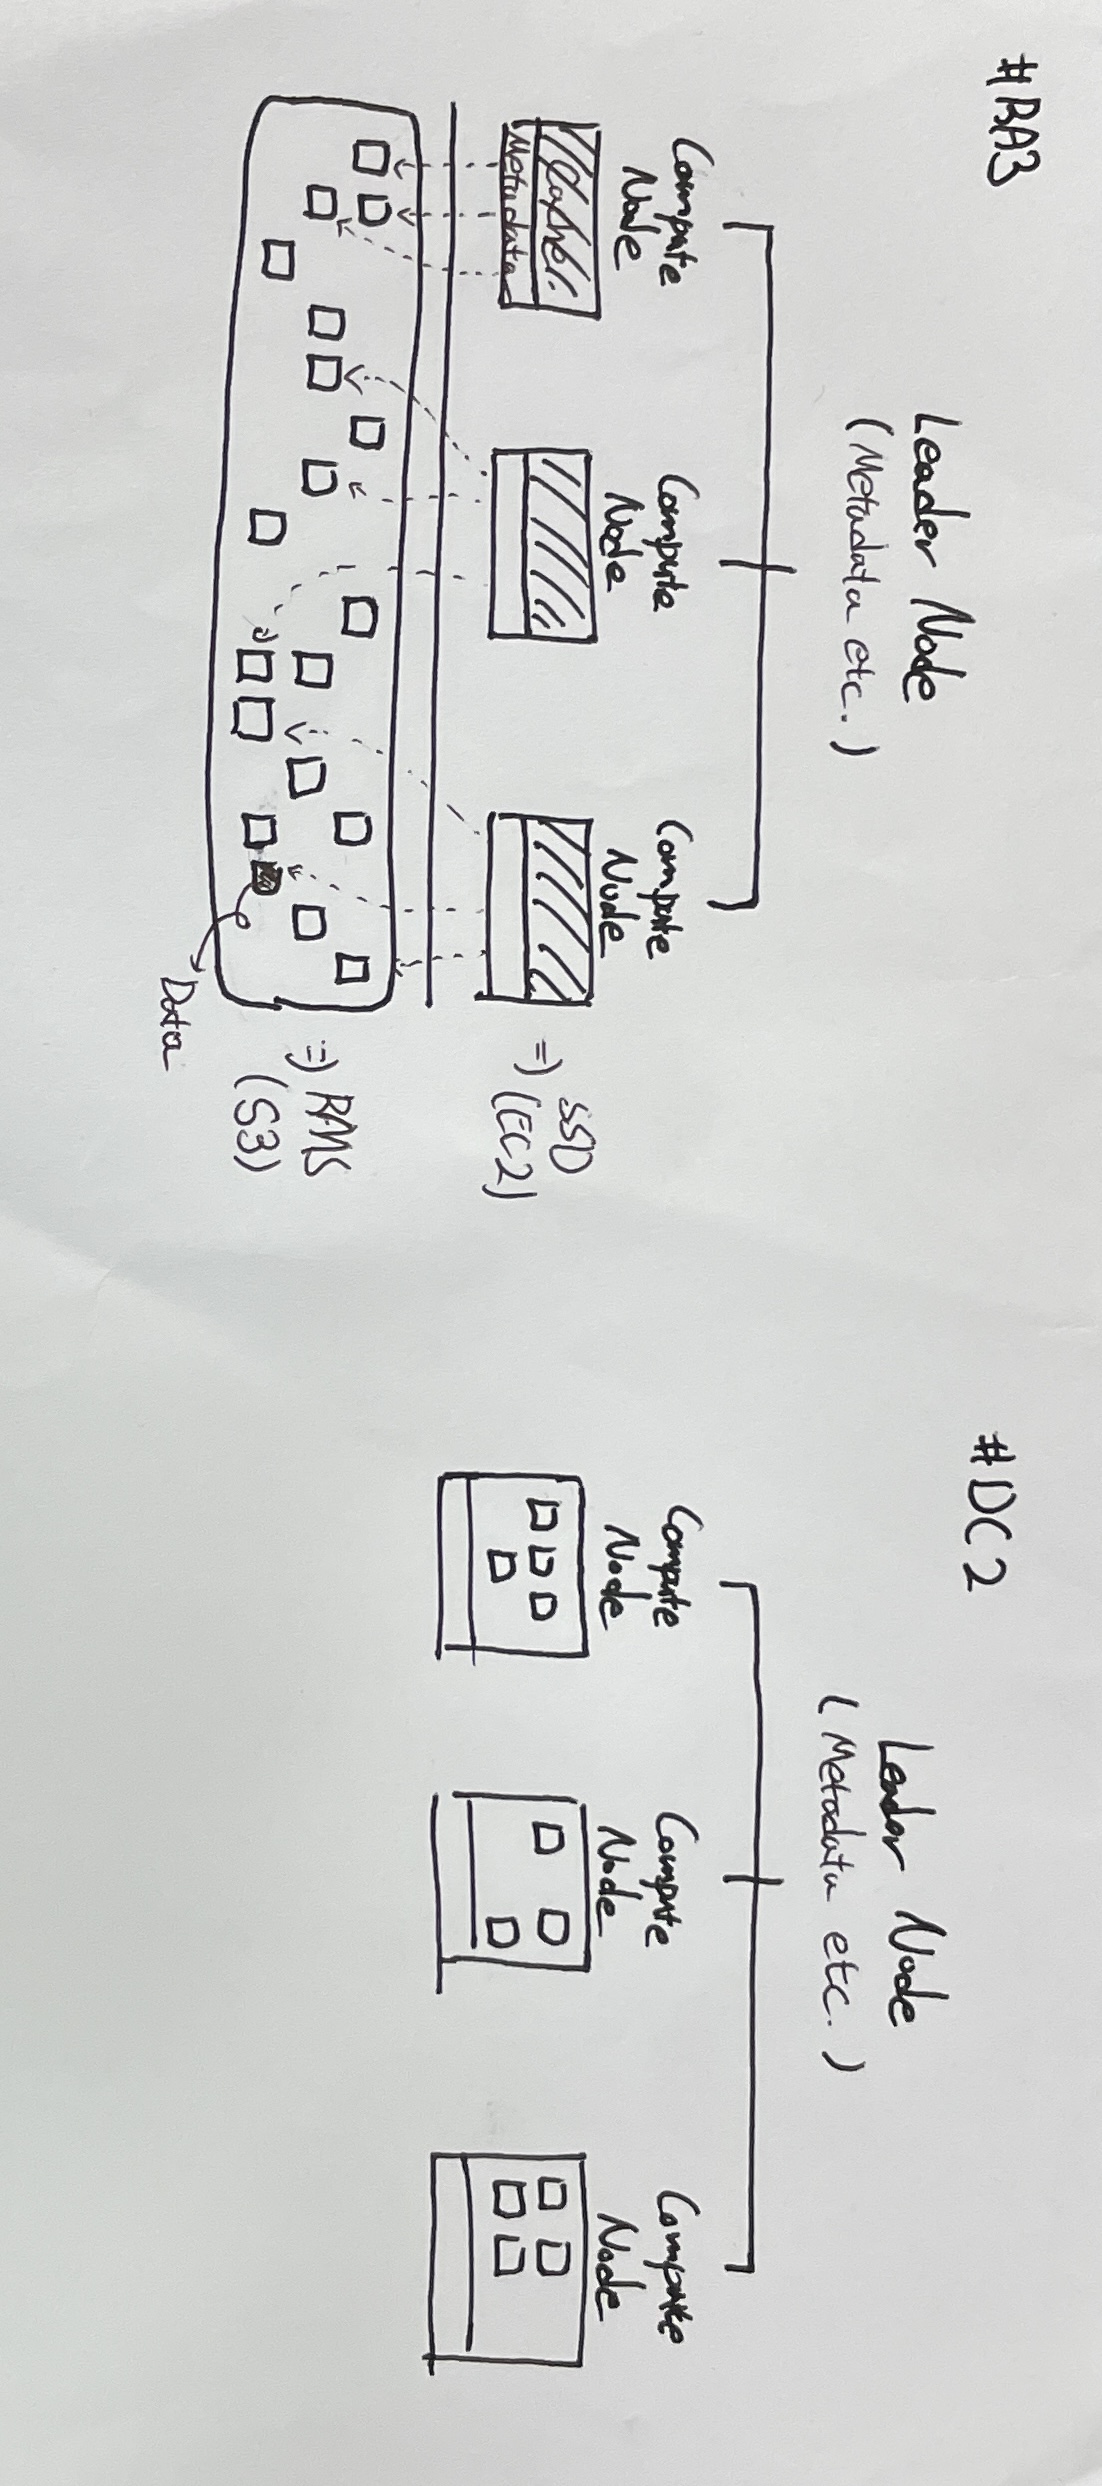 #RA3
Leader Node
(Metadata etc.)
Compute
Node
Compute
Node
Compute
Node
Cache
Metadata
=> SSD
(EC2)
=> RMS
(S3)
Data
#DC2
Leader Node
(Metadata etc.)
Compute
Node
Compute
Node
Compute
Node